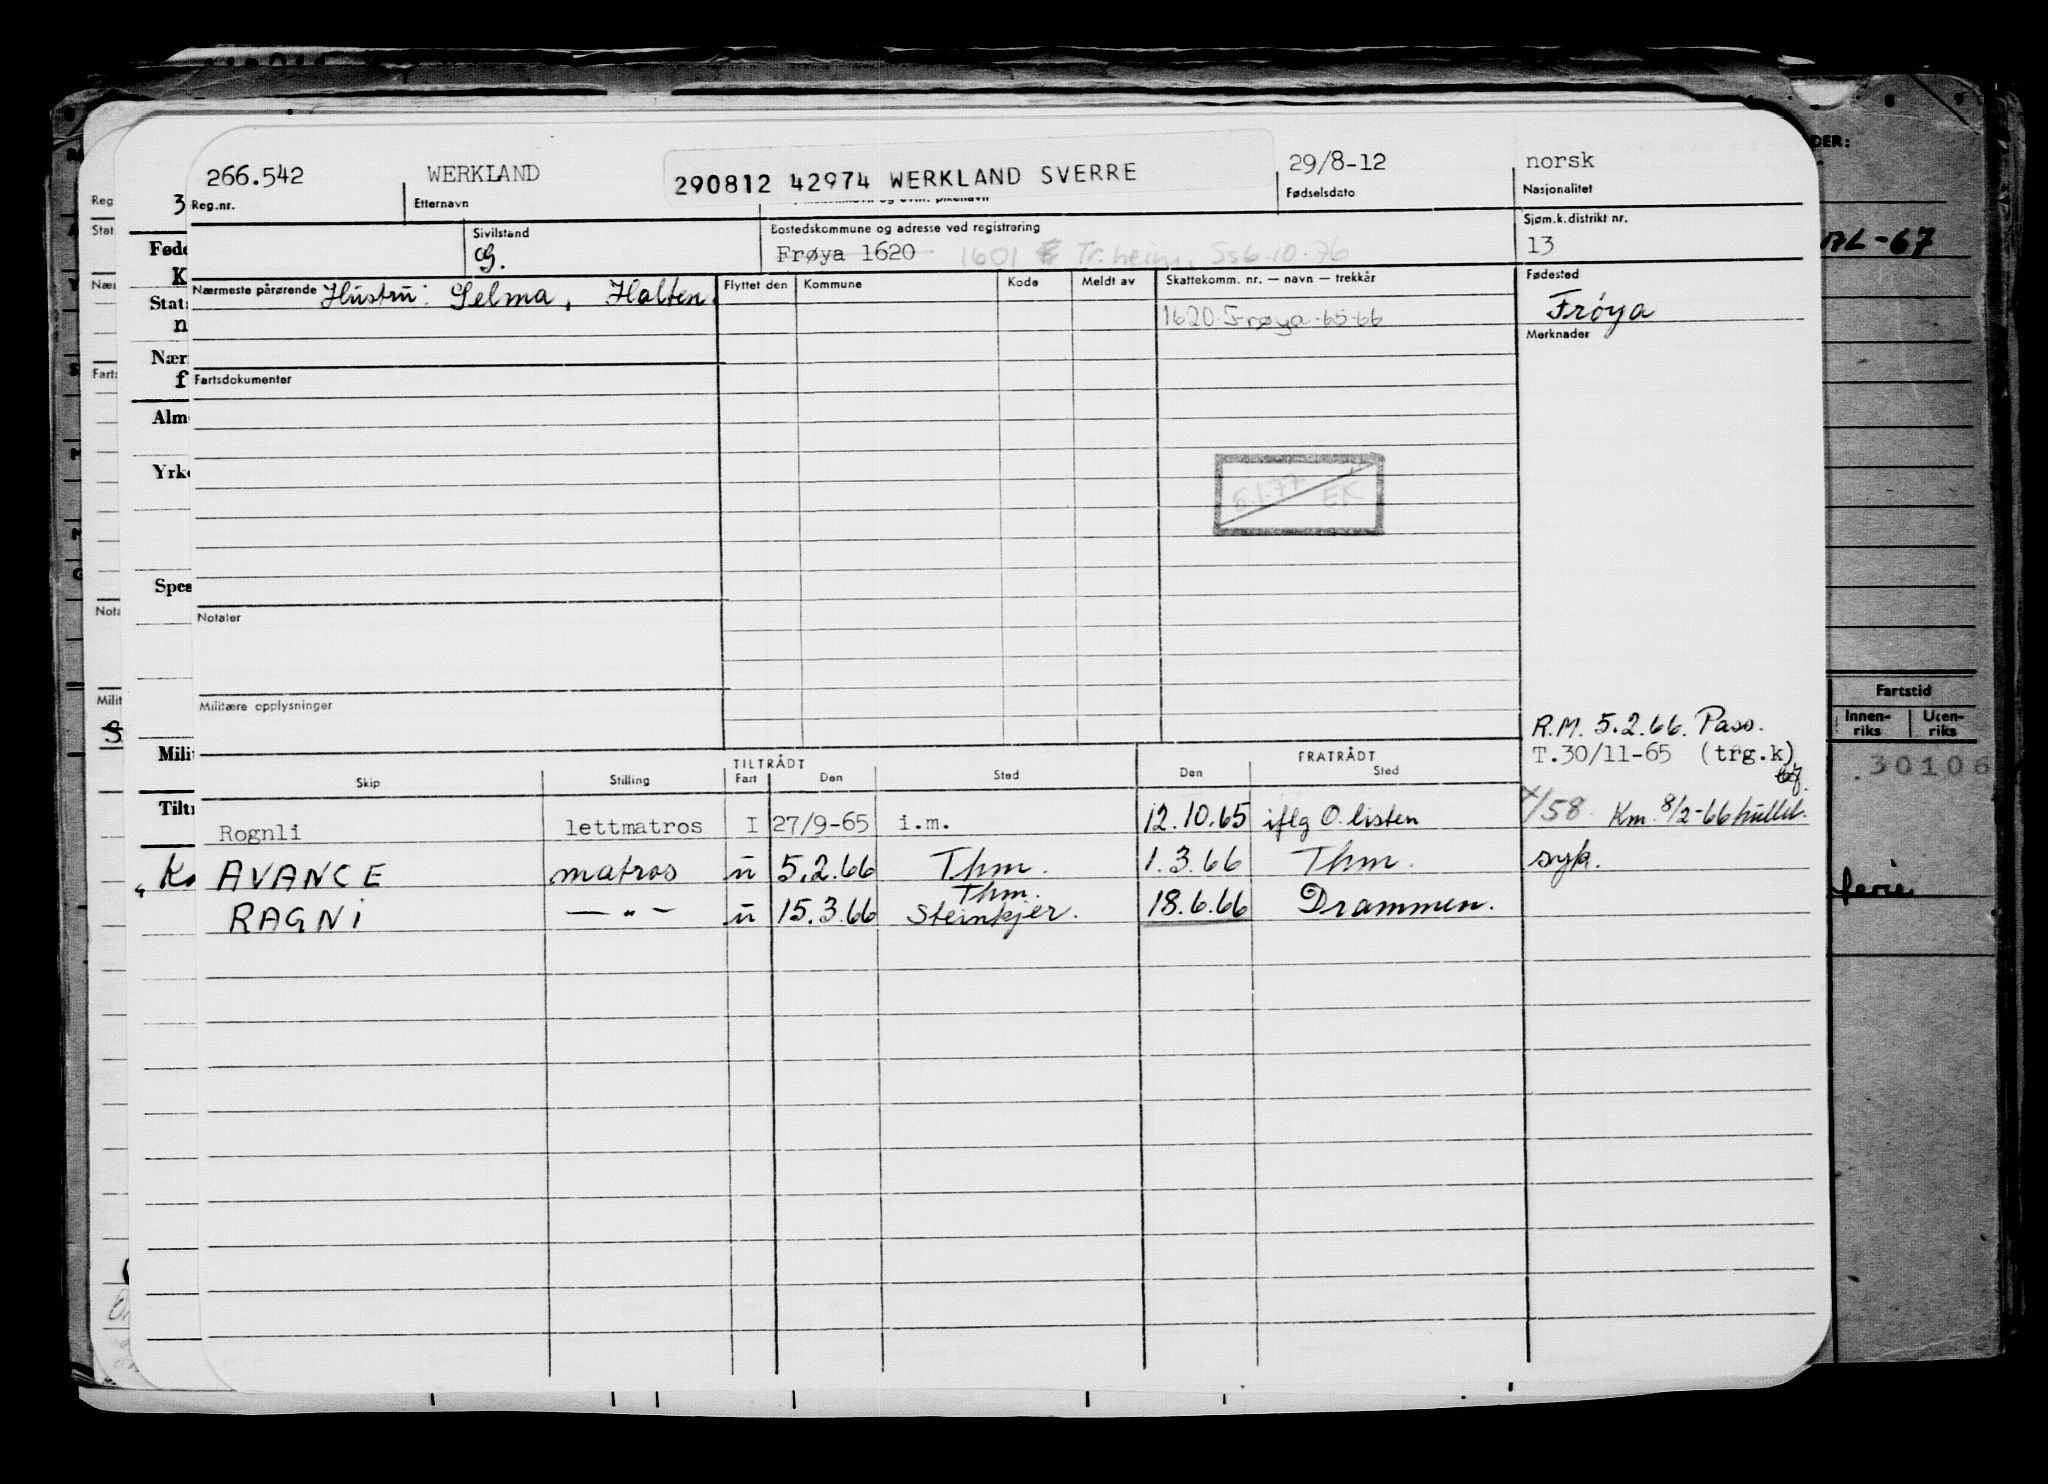 266.542 WERKLAND 290812 42974 WERKLAND SVERRE 29/8-12 norsk
Reg.nr. Etternavn Fødselsdato Nasjonalitet
Sivilstand Bostedskommune og adresse ved registrering Sjøm.k.distrikt nr.
G. Frøya 1620 1601 Tr.heim, Ss6.10.76 13
Nærmeste pårørende Hustru: Selma, Halten. Flyttet den Kommune Kode Meldt av Skattekomm. nr. — navn — trekkår Fødested
1620 Frøya -65-66 Frøya
Merknader
Fartsdokumenter
6.1.77 EK
Notater
Militære opplysninger
R.M. 5.2.66. Pass.
T.30/11-65 (trg.k)
TILTRÅDT FRATRÅDT
Skip Stilling Fart Den Sted Den Sted
Rognli lettmatros I 27/9-65 i.m. 12.10.65 iflg O.listen /58 Km. 8/2-66
AVANCE matros u 5.2.66 Thm. 1.3.66 Thm. syk.
RAGNI — " — u 15.3.66 Thm. Steinkjer. 18.6.66 Drammen.
Reg
3
Føde
Stat
K
Nær
Stats
n
Nær
f
Farts
Alm
Yrke
Spes
Nota
Milit
Mili
Tilt
Ko
DER:
-67
Fartstid
Innen-riks Uten-riks
30106
ferie